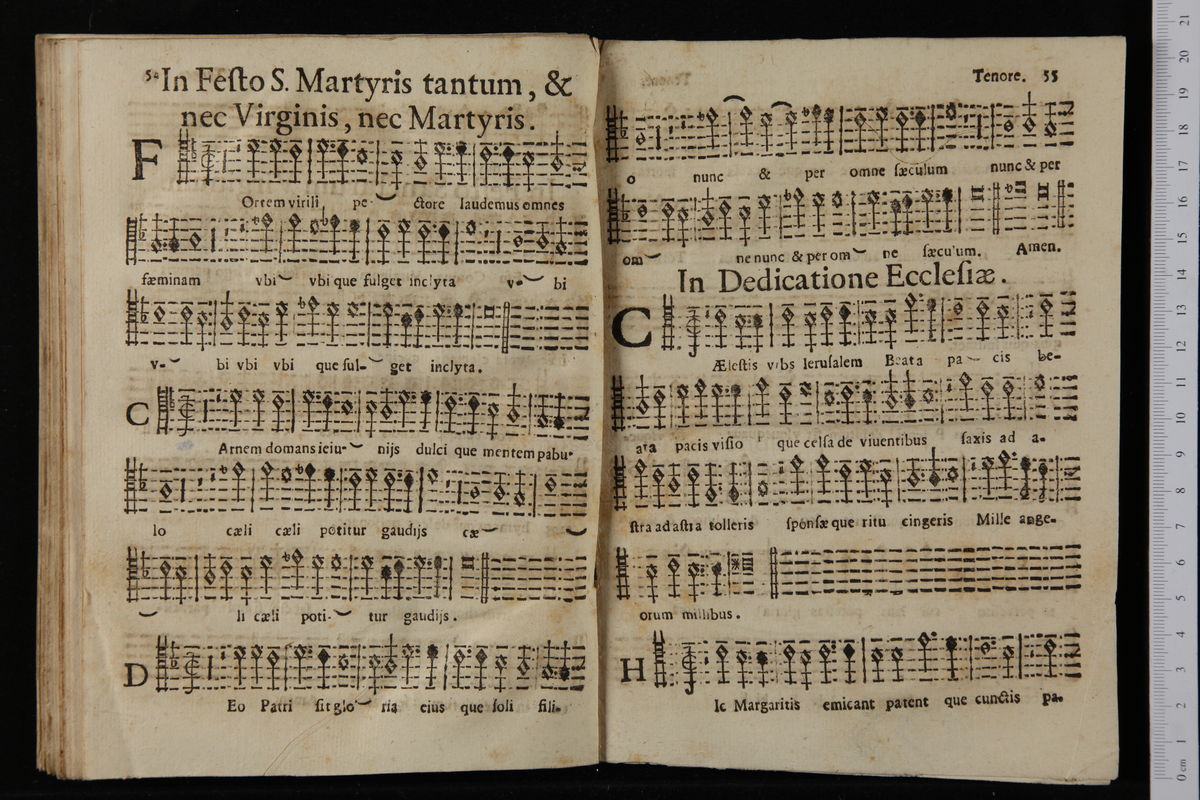 54 In Feſto S. Martyris tantum, &
nec Virginis, nec Martyris.
F
Ortem virili pe- ctore laudemus omnes
fæminam vbi vbi que fulget inclyta v- bi
v- bi vbi vbi que ful- get inclyta.
C
Arnem domans ieiu- nijs dulci que mentem pabu-
lo cæli cæli potitur gaudijs cæ
li cæli poti- tur gaudijs.
D
Eo Patri ſit glo ria eius que ſoli fili-
Tenore. 55
o nunc & per omne ſæculum nunc & per
om ne nunc & per om ne ſæculum. Amen.
In Dedicatione Eccleſiæ.
C
Æleſtis vrbs Ieruſalem Beata pa- cis be-
ata pacis viſio que celſa de viuentibus ſaxis ad a-
ſtra ad aſtra tolleris ſponſæ que ritu cingeris Mille ange-
orum millibus.
H
Ic Margaritis emicant patent que cunctis pa-
0 cm 1 2 3 4 5 6 7 8 9 10 11 12 13 14 15 16 17 18 19 20 21